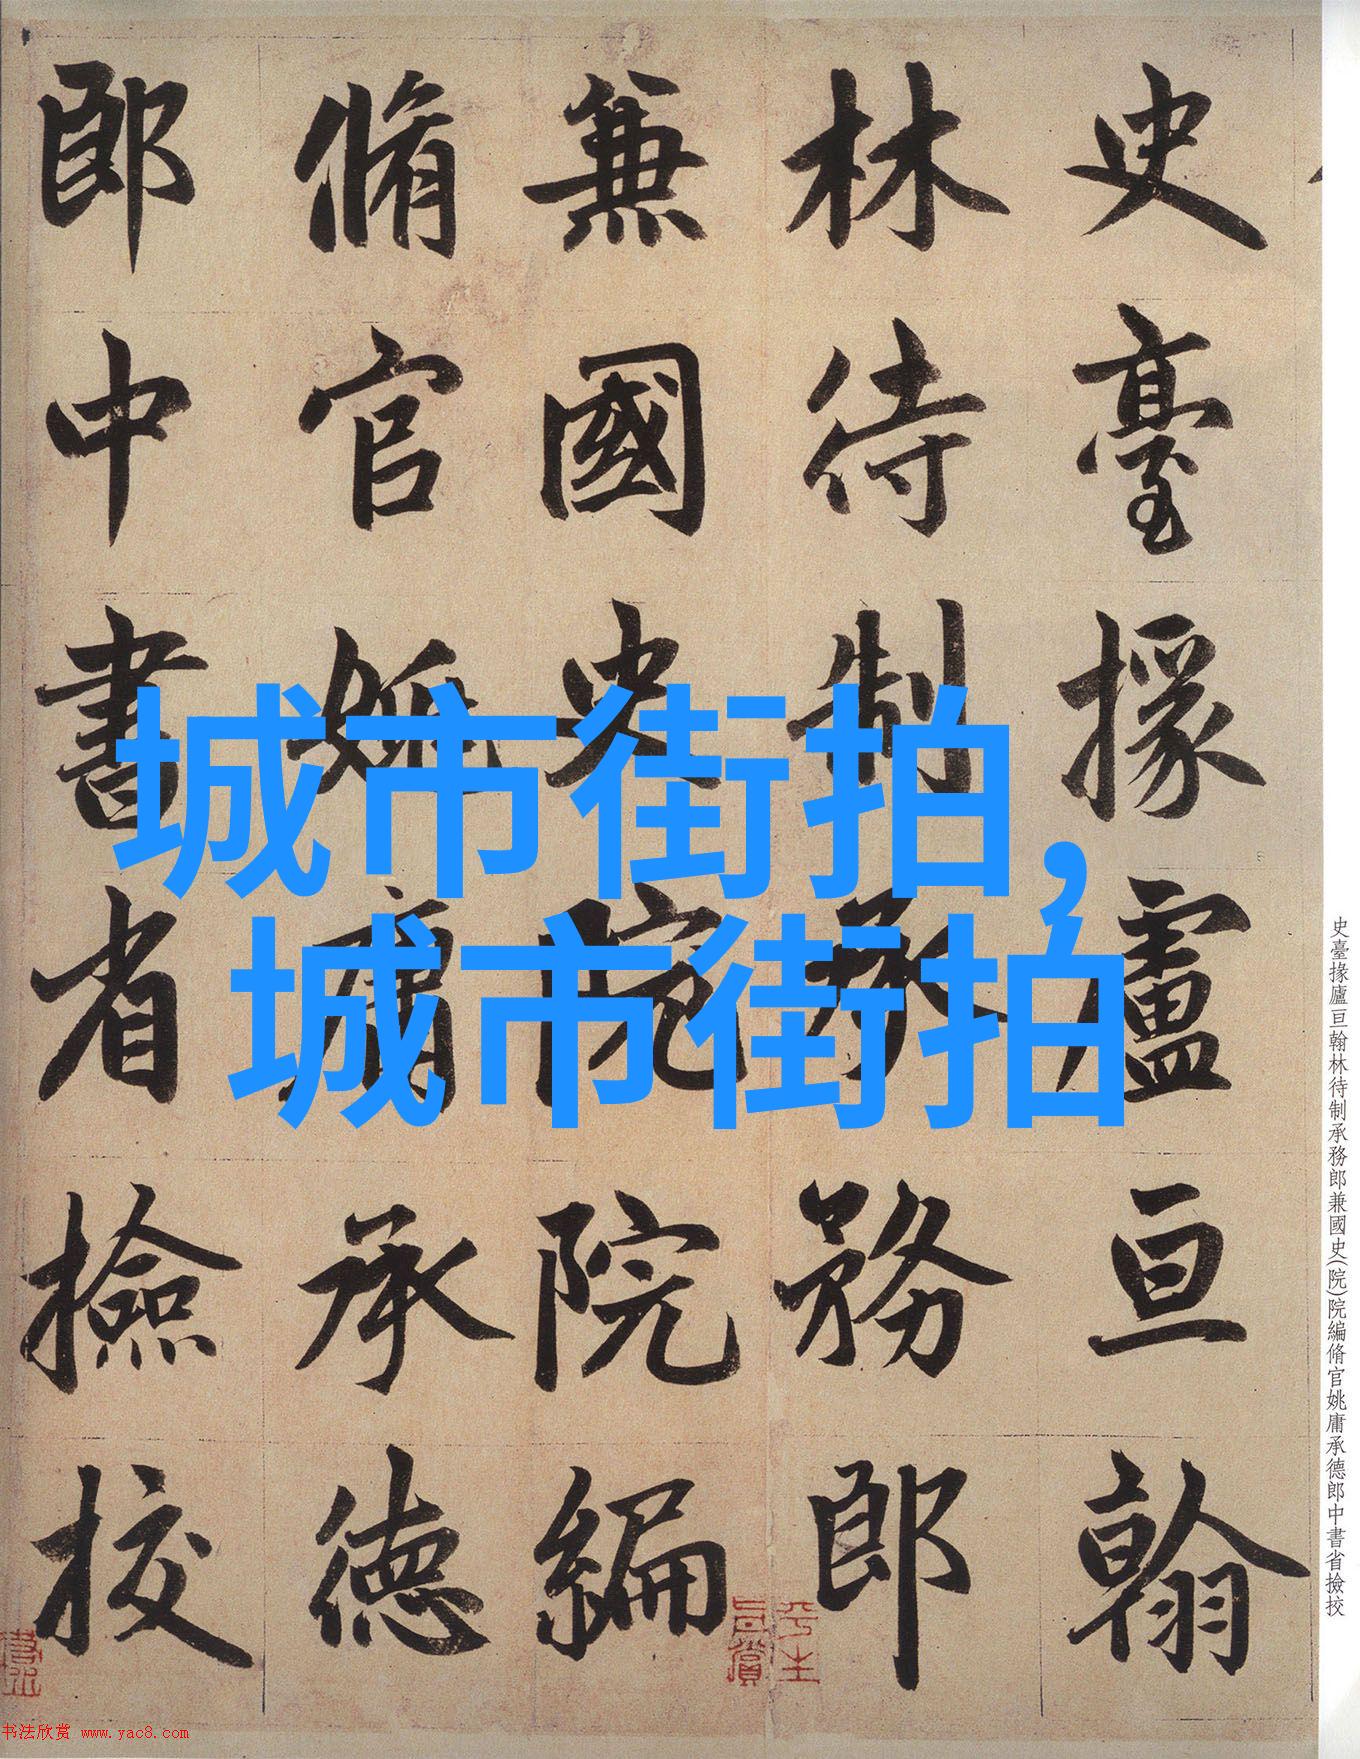 城市街拍,
城市街拍
史臺掾盧亘翰
林待制承務郎
兼國史院院編
脩官姚庸承德
郎中書省撿挍
史臺掾廬亘翰林待制承務郎兼國史(院)院編脩官姚庸承德郎中書省撿挍
平生
真賞
书法欣赏 www.yac8.com